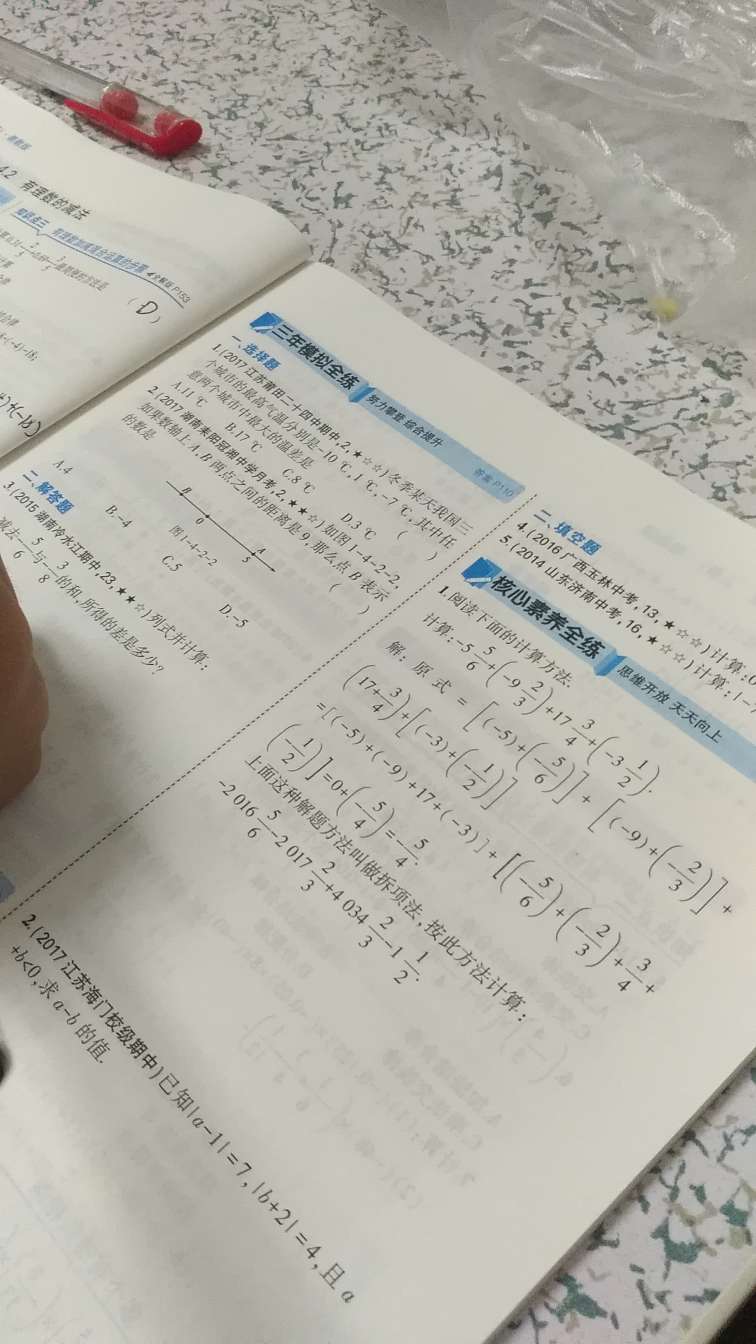 4.2 有理数的减法
(D)
三年模拟全练 努力攀登 综合提升
答案 P110
一、选择题
1.(2017江苏莆田二十四中期中,2,★☆☆)冬季某天我国三
个城市的最高气温分别是-10 ℃,1 ℃,-7 ℃,其中任
意两个城市中最大的温差是 ( )
A.11 ℃ B.17 ℃ C.8 ℃ D.3 ℃
2.(2017湖南耒阳冠湘中学月考,2,★★☆)如图1-4-2-2,
如果数轴上A,B两点之间的距离是9,那么点B表示
的数是 ( )
B 0 A
5
图1-4-2-2
A.4 B.-4 C.5 D.-5
二、解答题
3.(2015湖南冷水江期中,23,★★☆)列式并计算:
减去-5/6与-3/8的和,所得的差是多少?
二、填空题
4.(2016广西玉林中考,13,★☆☆)计算:
5.(2014山东济南中考,16,★☆☆)计算:|-
核心素养全练 思维开放 天天向上
1.阅读下面的计算方法.
计算:-5 5/6+(-9 2/3)+17 3/4+(-3 1/2).
解:原式=[(-5)+(-5/6)]+[(-9)+(-2/3)]+
(17+3/4)+[(-3)+(-1/2)]
=[(-5)+(-9)+17+(-3)]+[(-5/6)+(-2/3)+3/4+
(-1/2)]=0+(-5/4)=-5/4.
上面这种解题方法叫做拆项法,按此方法计算:
-2 016 5/6-2 017 2/3+4 034 2/3-1 1/2.
2.(2017江苏海门校级期中)已知|a-1|=7,|b+2|=4,且a
+b<0,求a-b的值.